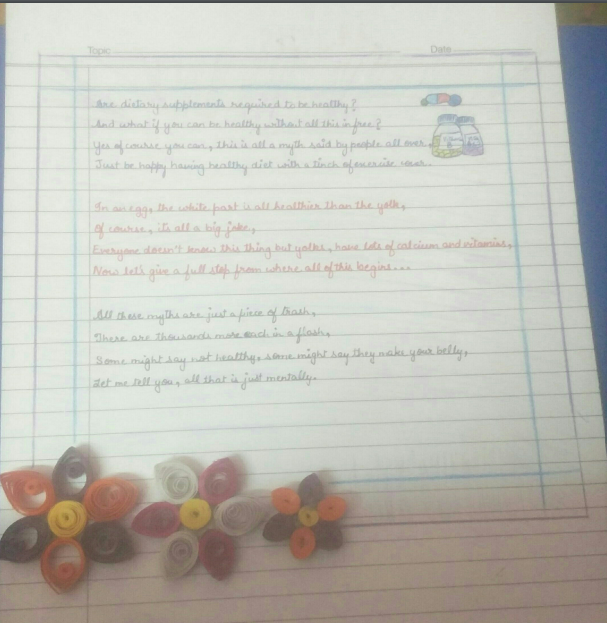 Topic
Date
Are dietary supplements required to be healthy?
And what if you can be healthy without all this in free?
Yes of course you can, this is all a myth said by people all over,
Just be happy having healthy diet with a tinch of exercise
In an egg, the white part is all healthier than the yolk,
Of course, its all a big joke,
Everyone doesn't know this thing but yolks, have lots of calcium and vitamins,
Now let's give a full stop from where all of this begins...
All those myths are just a piece of trash,
There are thousands more such in a flash,
Some might say not healthy, some might say they make your belly,
Let me tell you, all that is just mentally.